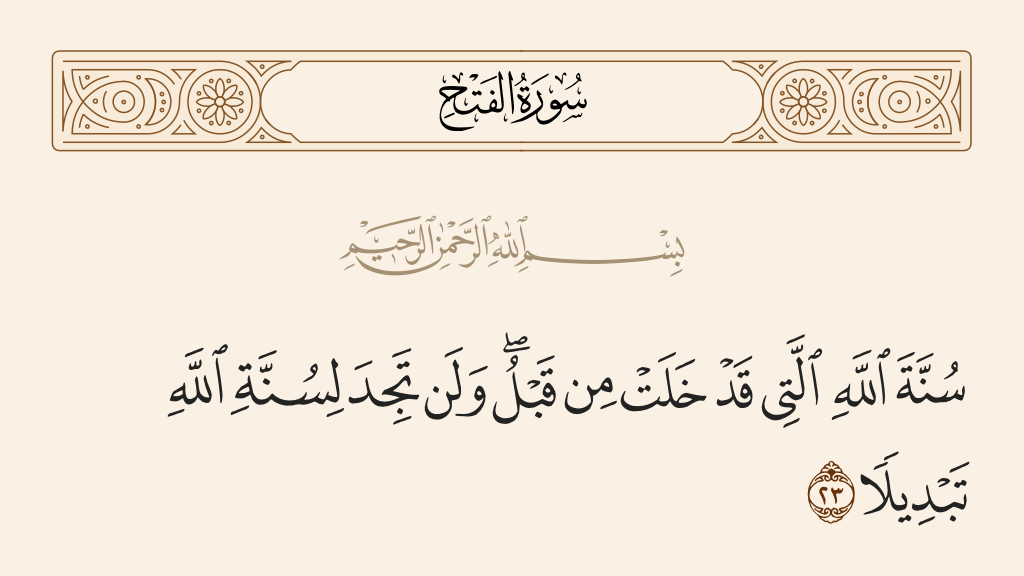 سُورَةُ الفَتْحِ
بِسْمِ ٱللَّهِ ٱلرَّحْمَٰنِ ٱلرَّحِيمِ
سُنَّةَ ٱللَّهِ ٱلَّتِى قَدْ خَلَتْ مِن قَبْلُ ۖ وَلَن تَجِدَ لِسُنَّةِ ٱللَّهِ
تَبْدِيلًا ٢٣